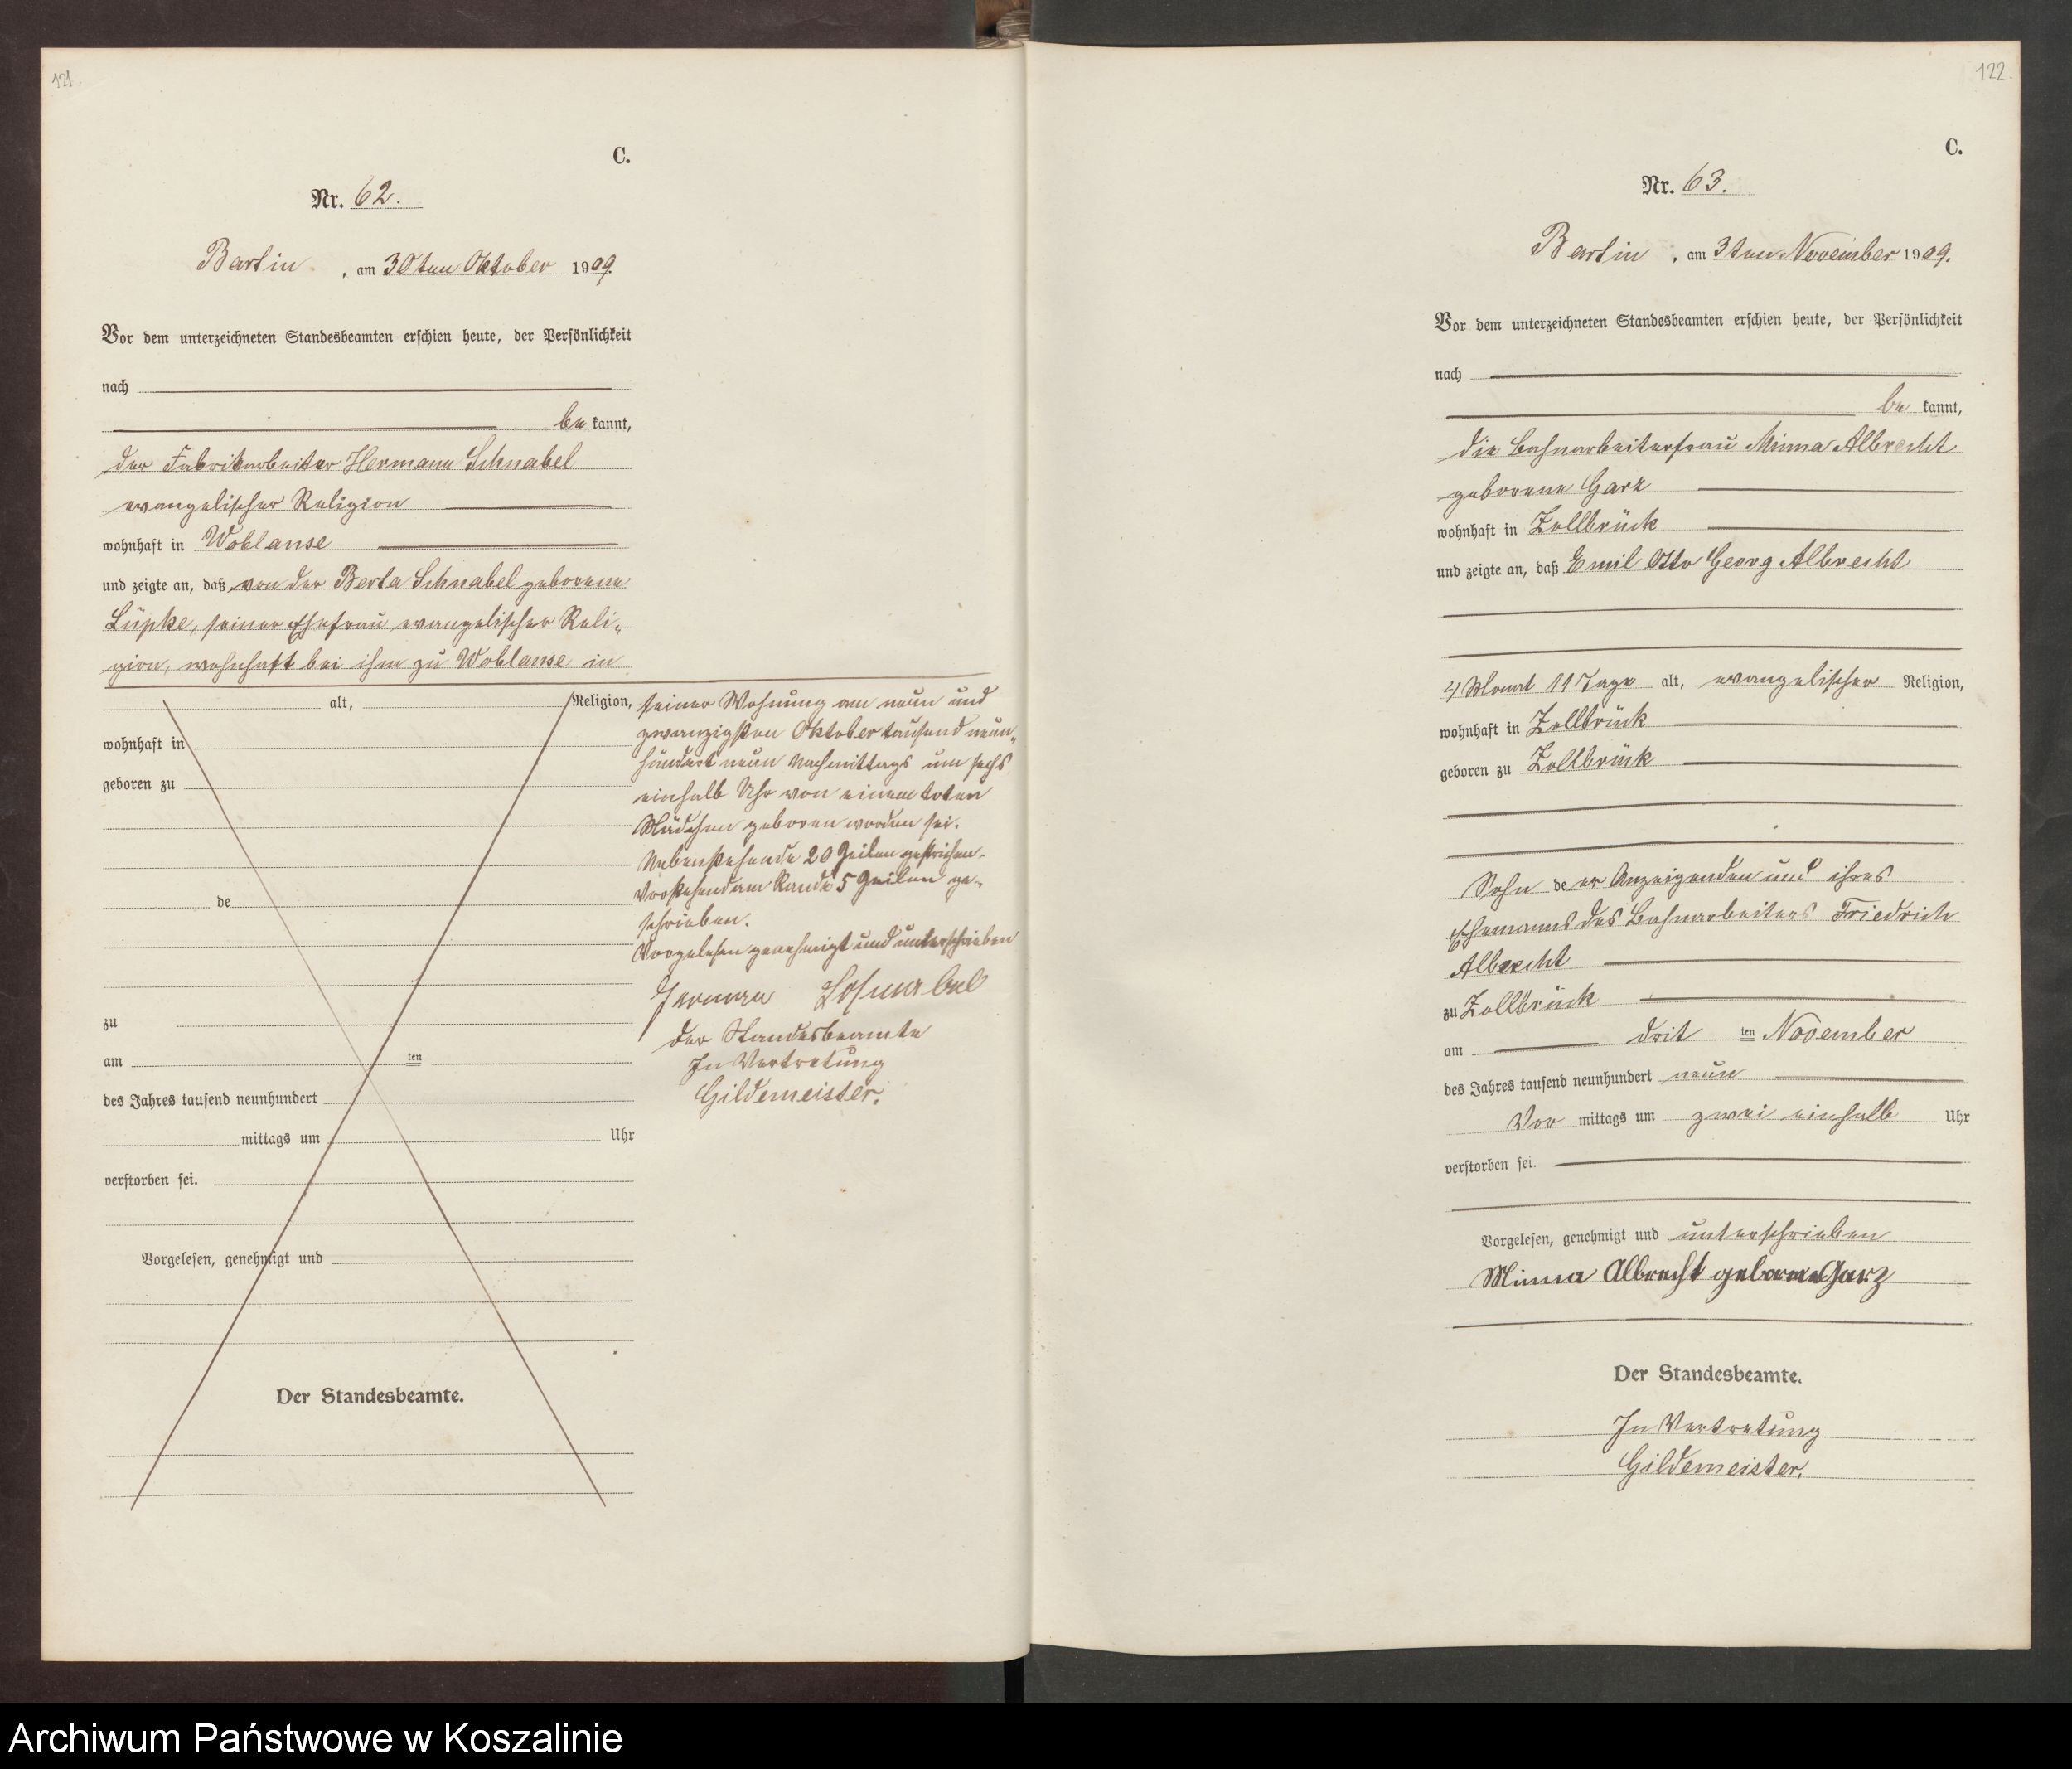 121.
C.
Nr. 62.
Bartin, am 30ten Oktober 1909.
Vor dem unterzeichneten Standesbeamten erschien heute, der Persönlichkeit
nach
be kannt,
der Fabrikarbeiter Hermann Schnabel
evangelischer Religion
wohnhaft in Woblanse
und zeigte an, daß von der Berta Schnabel geborene
Lüpke, seiner Ehefrau, evangelischer Reli-
gion, wohnhaft bei ihm zu Woblanse in
alt, Religion,
wohnhaft in
geboren zu
de
zu
am ten
des Jahres tausend neunhundert
mittags um Uhr
verstorben sei.
Vorgelesen, genehmigt und
Der Standesbeamte.
seiner Wohnung am neun und
zwanzigsten Oktober tausend neun-
hundert neun Nachmittags um sechs
einhalb Uhr von einem toten
Mädchen geboren worden sei.
Nebenstehende 20 Zeilen gestrichen.
Vorstehend am Rande 5 Zeilen ge-
schrieben.
Vorgelesen genehmigt und unterschrieben
Herman Schnabel
Der Standesbeamte
In Vertretung
Gildemeister.
122.
C.
Nr. 63.
Bartin, am 3ten November 1909.
Vor dem unterzeichneten Standesbeamten erschien heute, der Persönlichkeit
nach
be kannt,
die Bahnarbeiterfrau Minna Albrecht
geborene Garz
wohnhaft in Zollbrück
und zeigte an, daß Emil Otto Georg Albrecht
4 Monat 11 Tage alt, evangelischer Religion,
wohnhaft in Zollbrück
geboren zu Zollbrück
Sohn de er Anzeigenden und ihres
Ehemanns des Bahnarbeiters Friedrich
Albrecht
zu Zollbrück
am drit ten November
des Jahres tausend neunhundert neun
Vor mittags um zwei einhalb Uhr
verstorben sei.
Vorgelesen, genehmigt und unterschrieben
Minna Albrecht geborene Garz
Der Standesbeamte.
In Vertretung
Gildemeister.
Archiwum Państwowe w Koszalinie